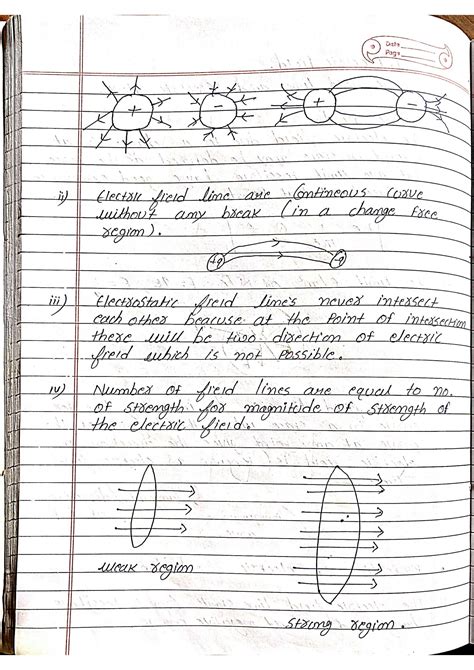 Date
Page
+ - + -
ii) Electric field line are Contineous curve
without any break (in a change free
region).
+q -q
iii) Electrostatic field lines never intersect
each other beacuse at the Point of intersection
there will be two direction of electric
field which is not possible.
iv) Number of field lines are equal to no.
of strength for magnitude of strength of
the electric field.
weak region
strong region.